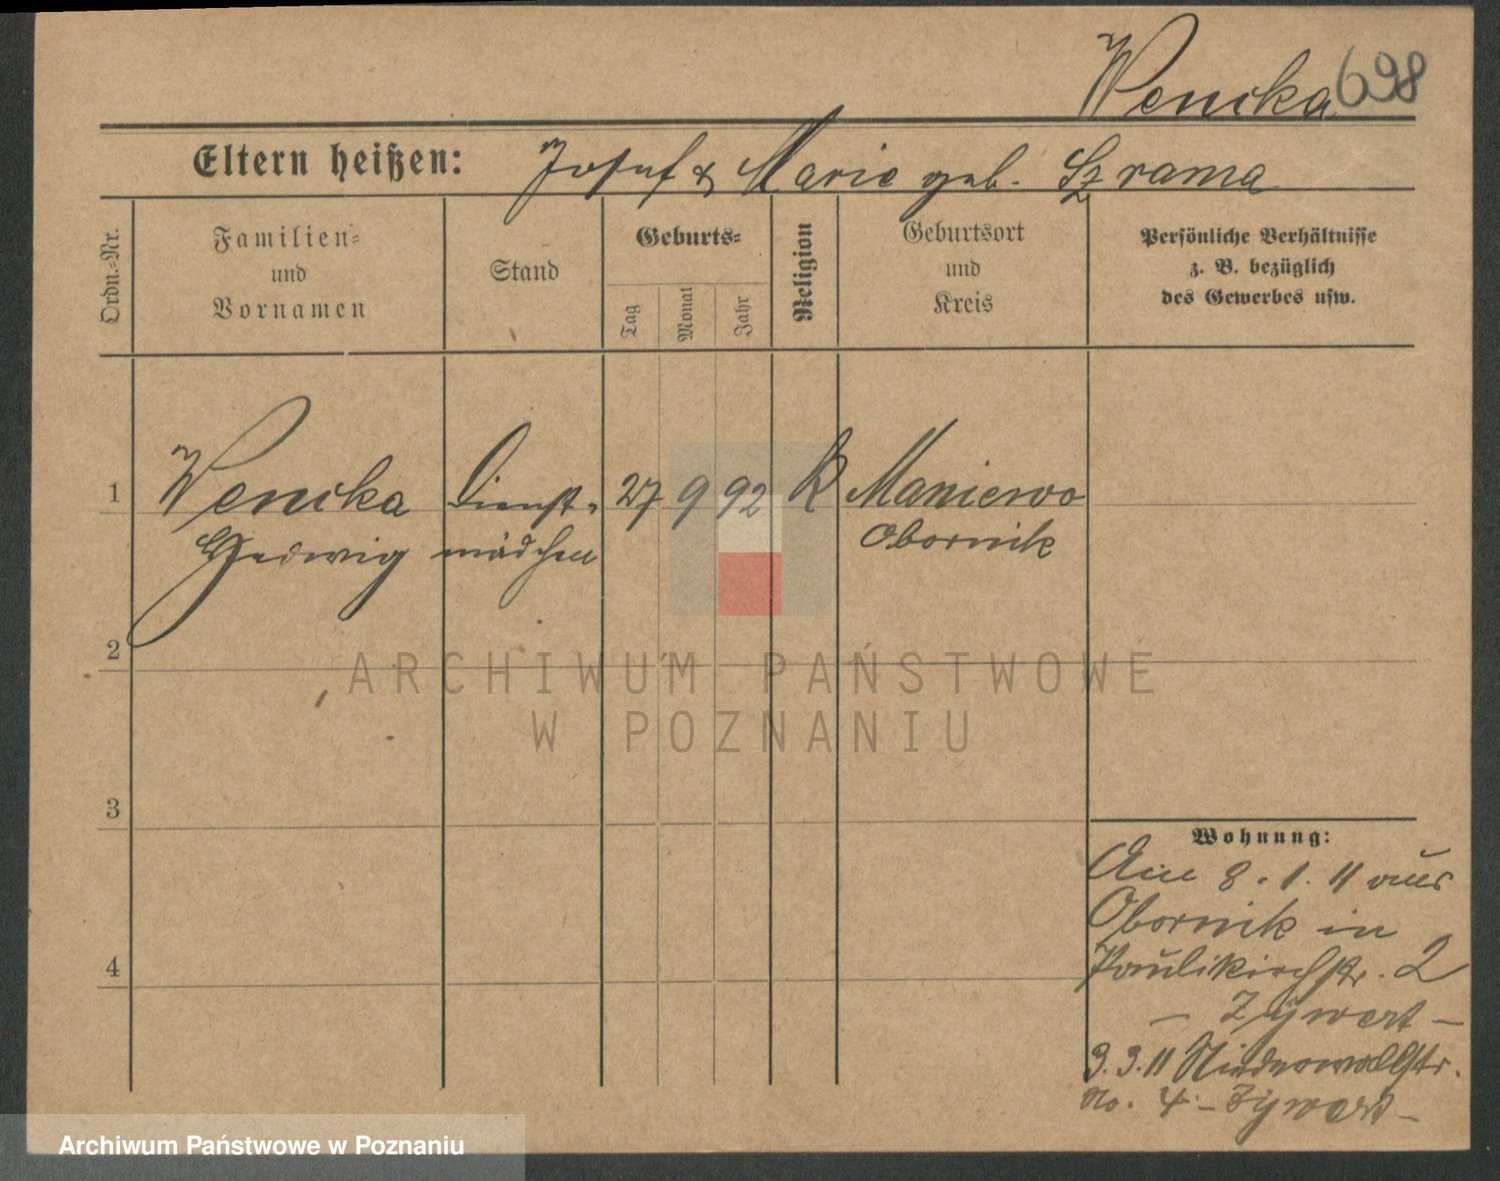 Wencka 698
Eltern heißen: Josef & Marie geb. Szrama
Ordn.-Nr.
Familien-
und
Vornamen
Stand
Geburts-
Tag
Monat
Jahr
Religion
Geburtsort
und
Kreis
Persönliche Verhältnisse
z. B. bezüglich
des Gewerbes usw.
1 Wencka Dienst- 27 9 92 K Maniewo
Hedwig mädchen Obornik
2
ARCHIWUM PAŃSTWOWE
W POZNANIU
3
Wohnung:
Am 8. 1. 11 aus
Obornik in
4
Paulikirchstr. 2
- Zywert -
3. 3. 11 Niederwallstr.
No. 4 - Zywert -
Archiwum Państwowe w Poznaniu